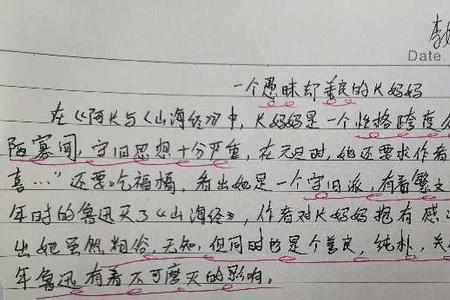 李
Date.
一个愚昧却善良的长妈妈
在《阿长与《山海经》中,长妈妈是一个性格跨度
陋寡闻,守旧思想十分严重,在元旦时,她还要求作者
喜…"还要吃福橘,看出她是一个守旧派,有着繁文
年时的鲁迅买了《山海经》,作者对长妈妈抱有感
出她虽然粗俗,无知,但同时也是个善良,纯朴,关
年鲁迅有着不可磨灭的影响。